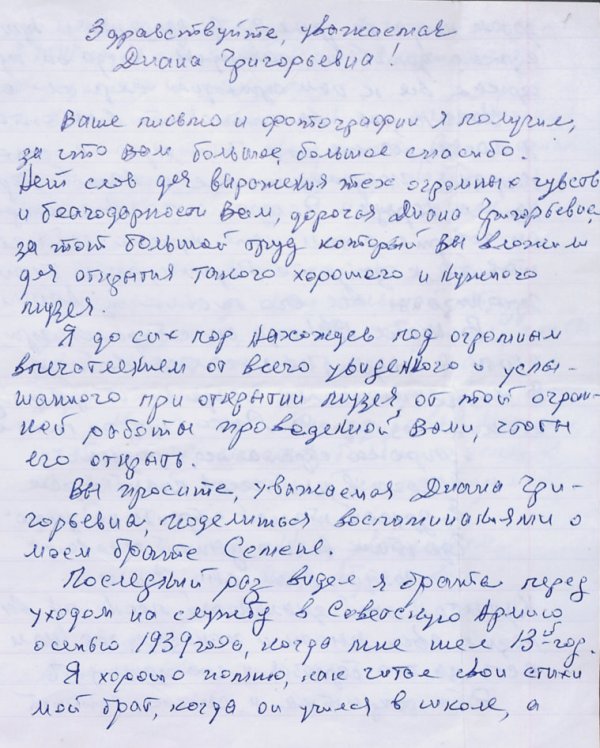 Здравствуйте, уважаемая
Диана Григорьевна!
Ваше письмо и фотографии я получил,
за что Вам большое, большое спасибо.
Нет слов для выражения тех огромных чувств
и благодарности Вам, дорогая Диана Григорьевна,
за тот большой труд который Вы вложили
для открытия такого хорошего и нужного
музея.
Я до сих пор нахожусь под огромным
впечатлением от всего увиденного и услы-
шанного при открытии музея, от той огром-
ной работы проведенной Вами, чтобы
его открыть.
Вы просите, уважаемая Диана Гри-
горьевна, поделиться воспоминаниями о
моем брате Семене.
Последний раз видел я брата перед
уходом на службу в Советскую Армию
осенью 1939 года, когда мне шел 13ый год.
Я хорошо помню, как читал свои стихи
мой брат, когда он учился в школе, а